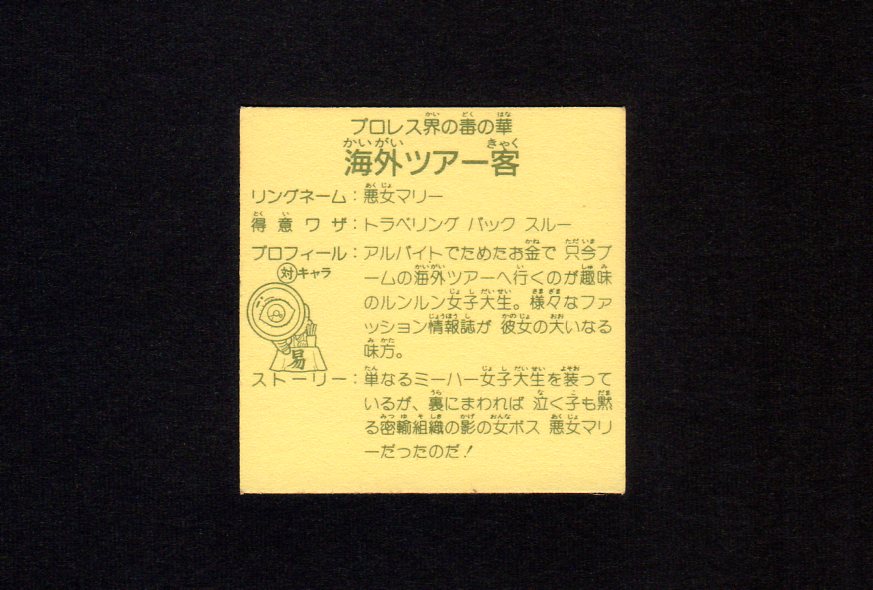 プロレス界の毒の華
海外ツアー客
リングネーム：悪女マリー
得意ワザ：トラベリング バック スルー
プロフィール：アルバイトでためたお金で 只今ブ
ームの海外ツアーへ行くのが趣味
のルンルン女子大生。様々なファ
ッション情報誌が 彼女の大いなる
味方。
対キャラ
易
ストーリー：単なるミーハー女子大生を装って
いるが、裏にまわれば 泣く子も黙
る密輸組織の影の女ボス 悪女マリ
ーだったのだ！